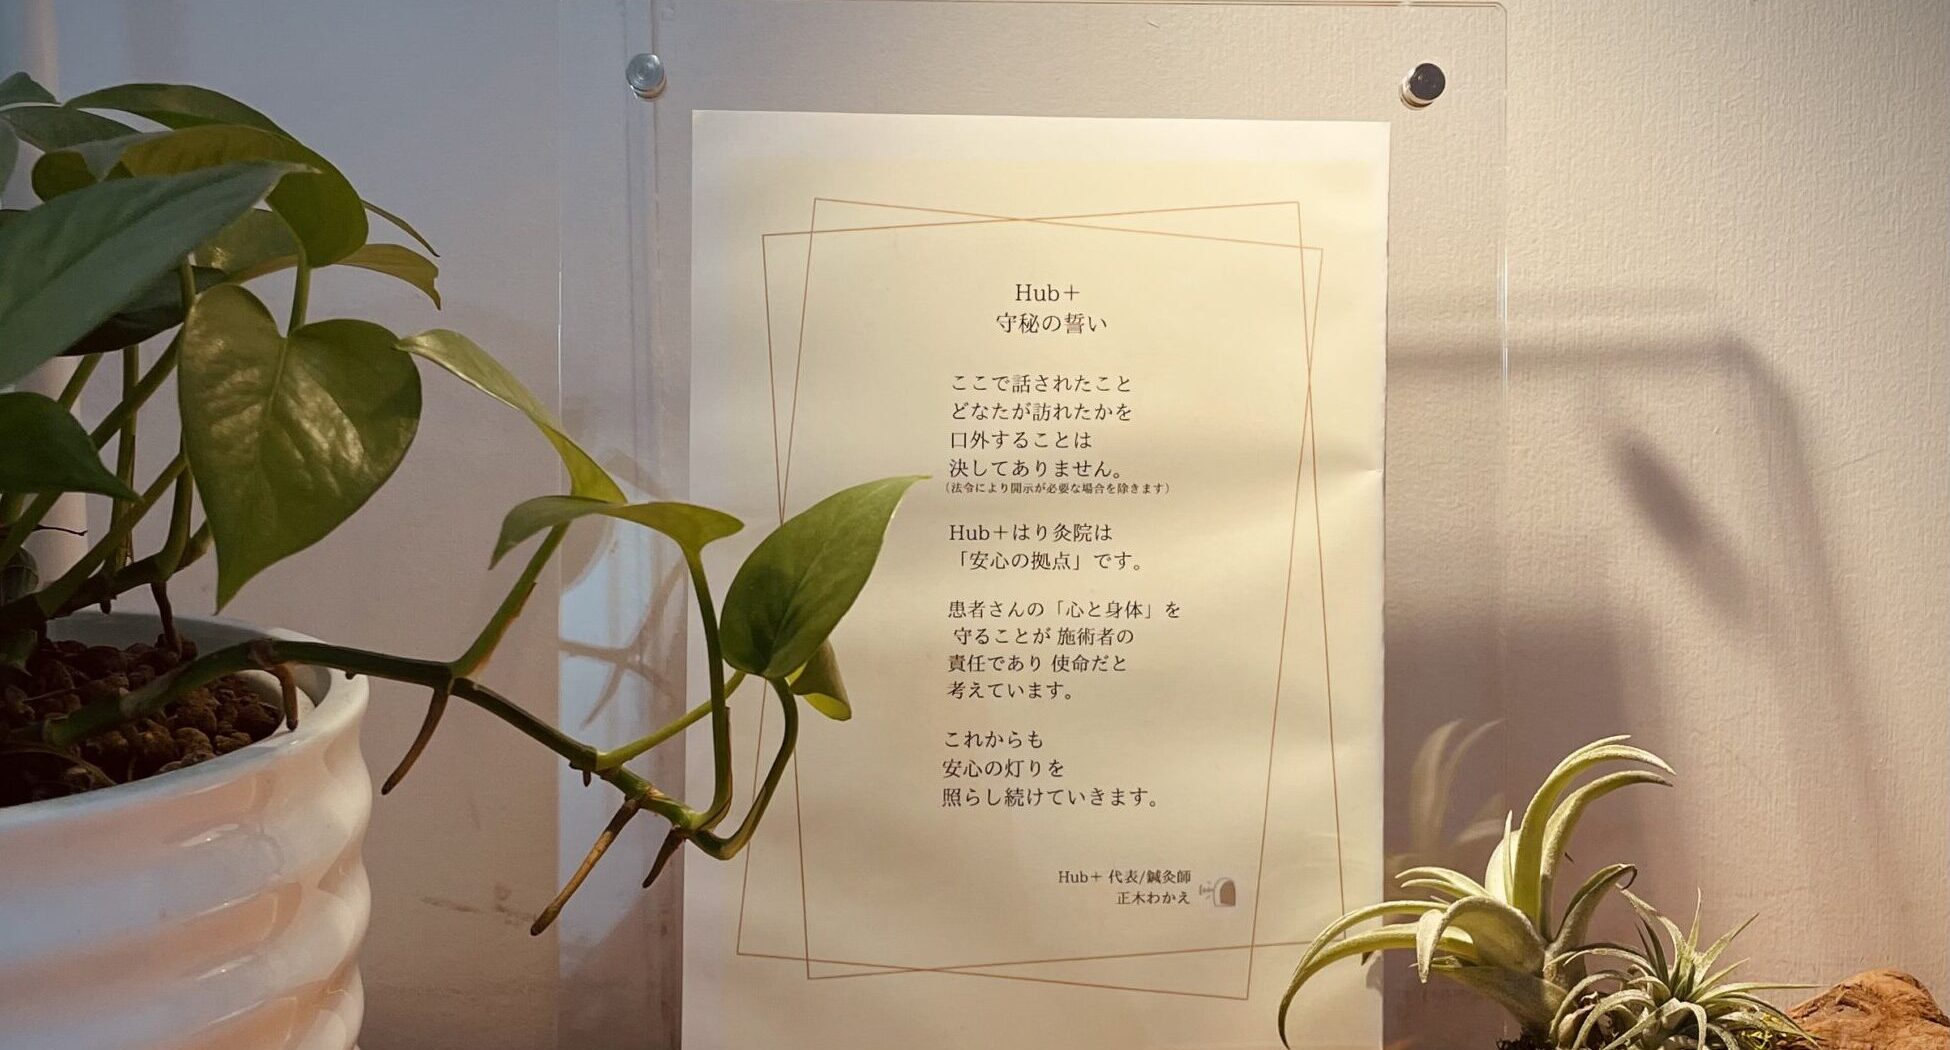 Hub＋
守秘の誓い
ここで話されたこと
どなたが訪れたかを
口外することは
決してありません。
（法令により開示が必要な場合を除きます）
Hub＋はり灸院は
「安心の拠点」です。
患者さんの「心と身体」を
守ることが 施術者の
責任であり 使命だと
考えています。
これからも
安心の灯りを
照らし続けていきます。
Hub＋ 代表/鍼灸師
正木わかえ